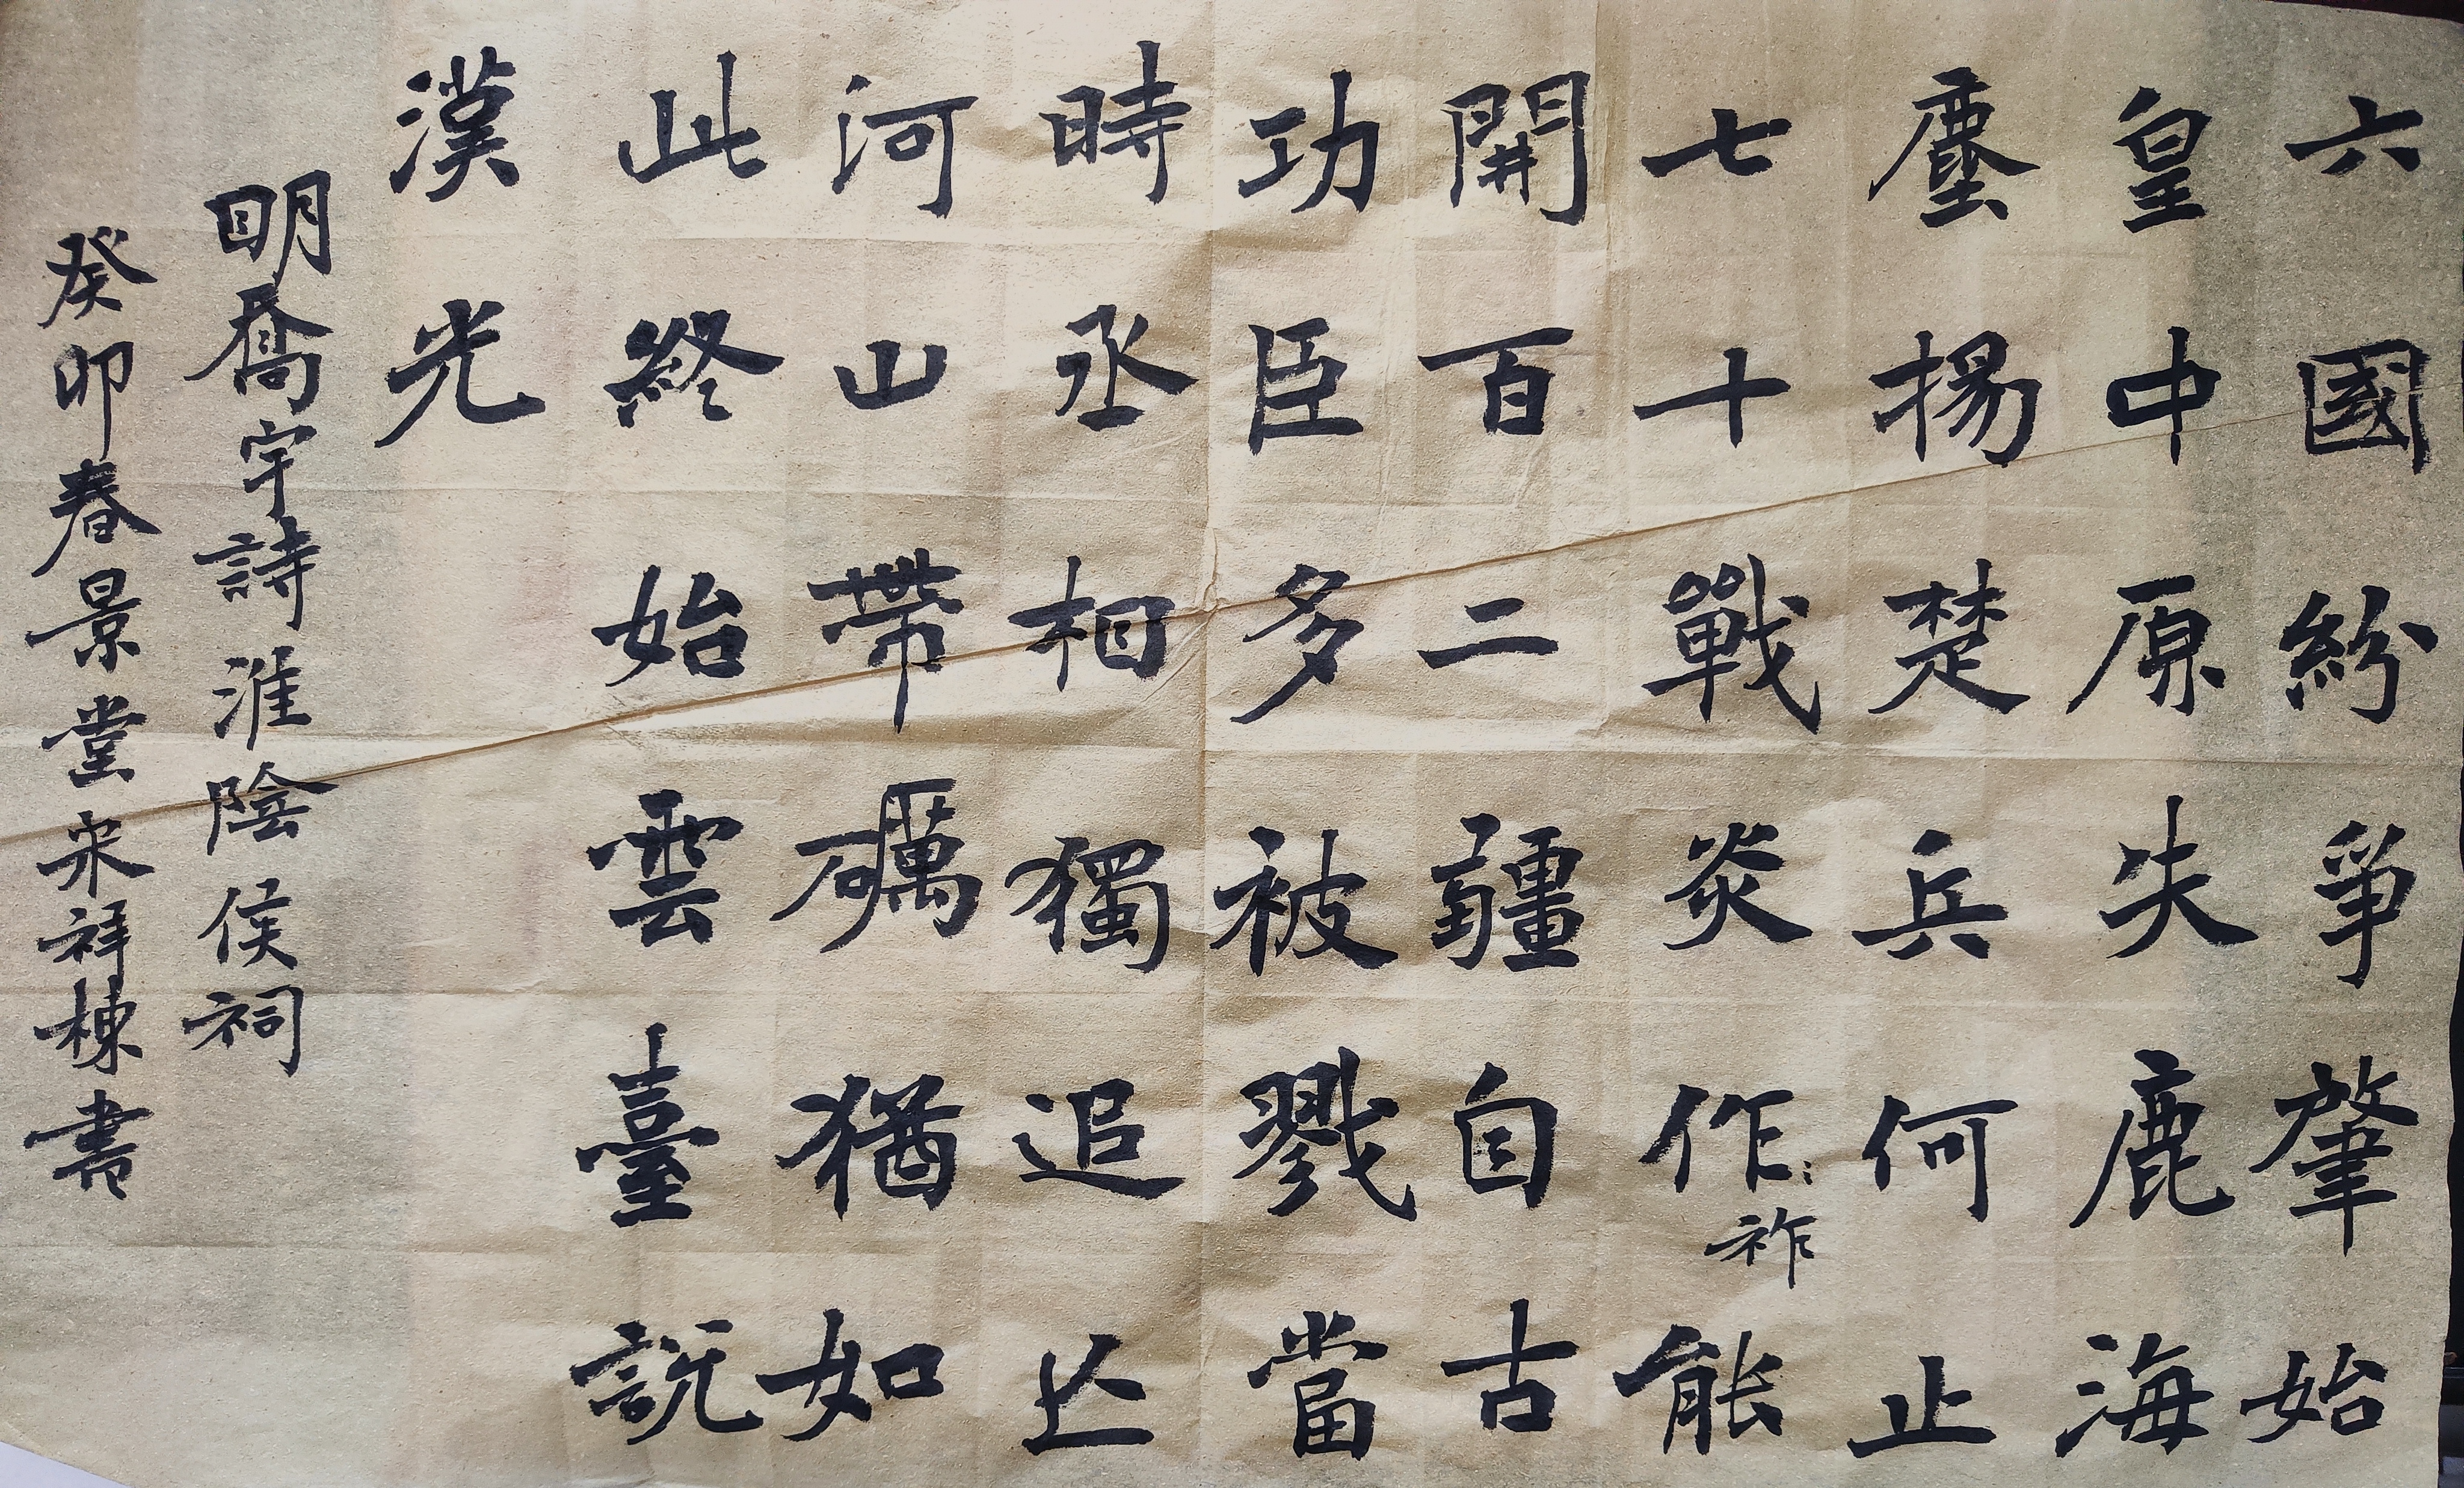 六國紛爭肇始
皇中原失鹿海
塵揚楚兵何止
七十戰炎作能
祚
開百二疆自古
功臣多被戮當
時丞相獨追亾
河山帶礪猶如
此終始雲臺説
漢光
明喬宇詩淮陰侯祠
癸卯春景堂宋祥棟書